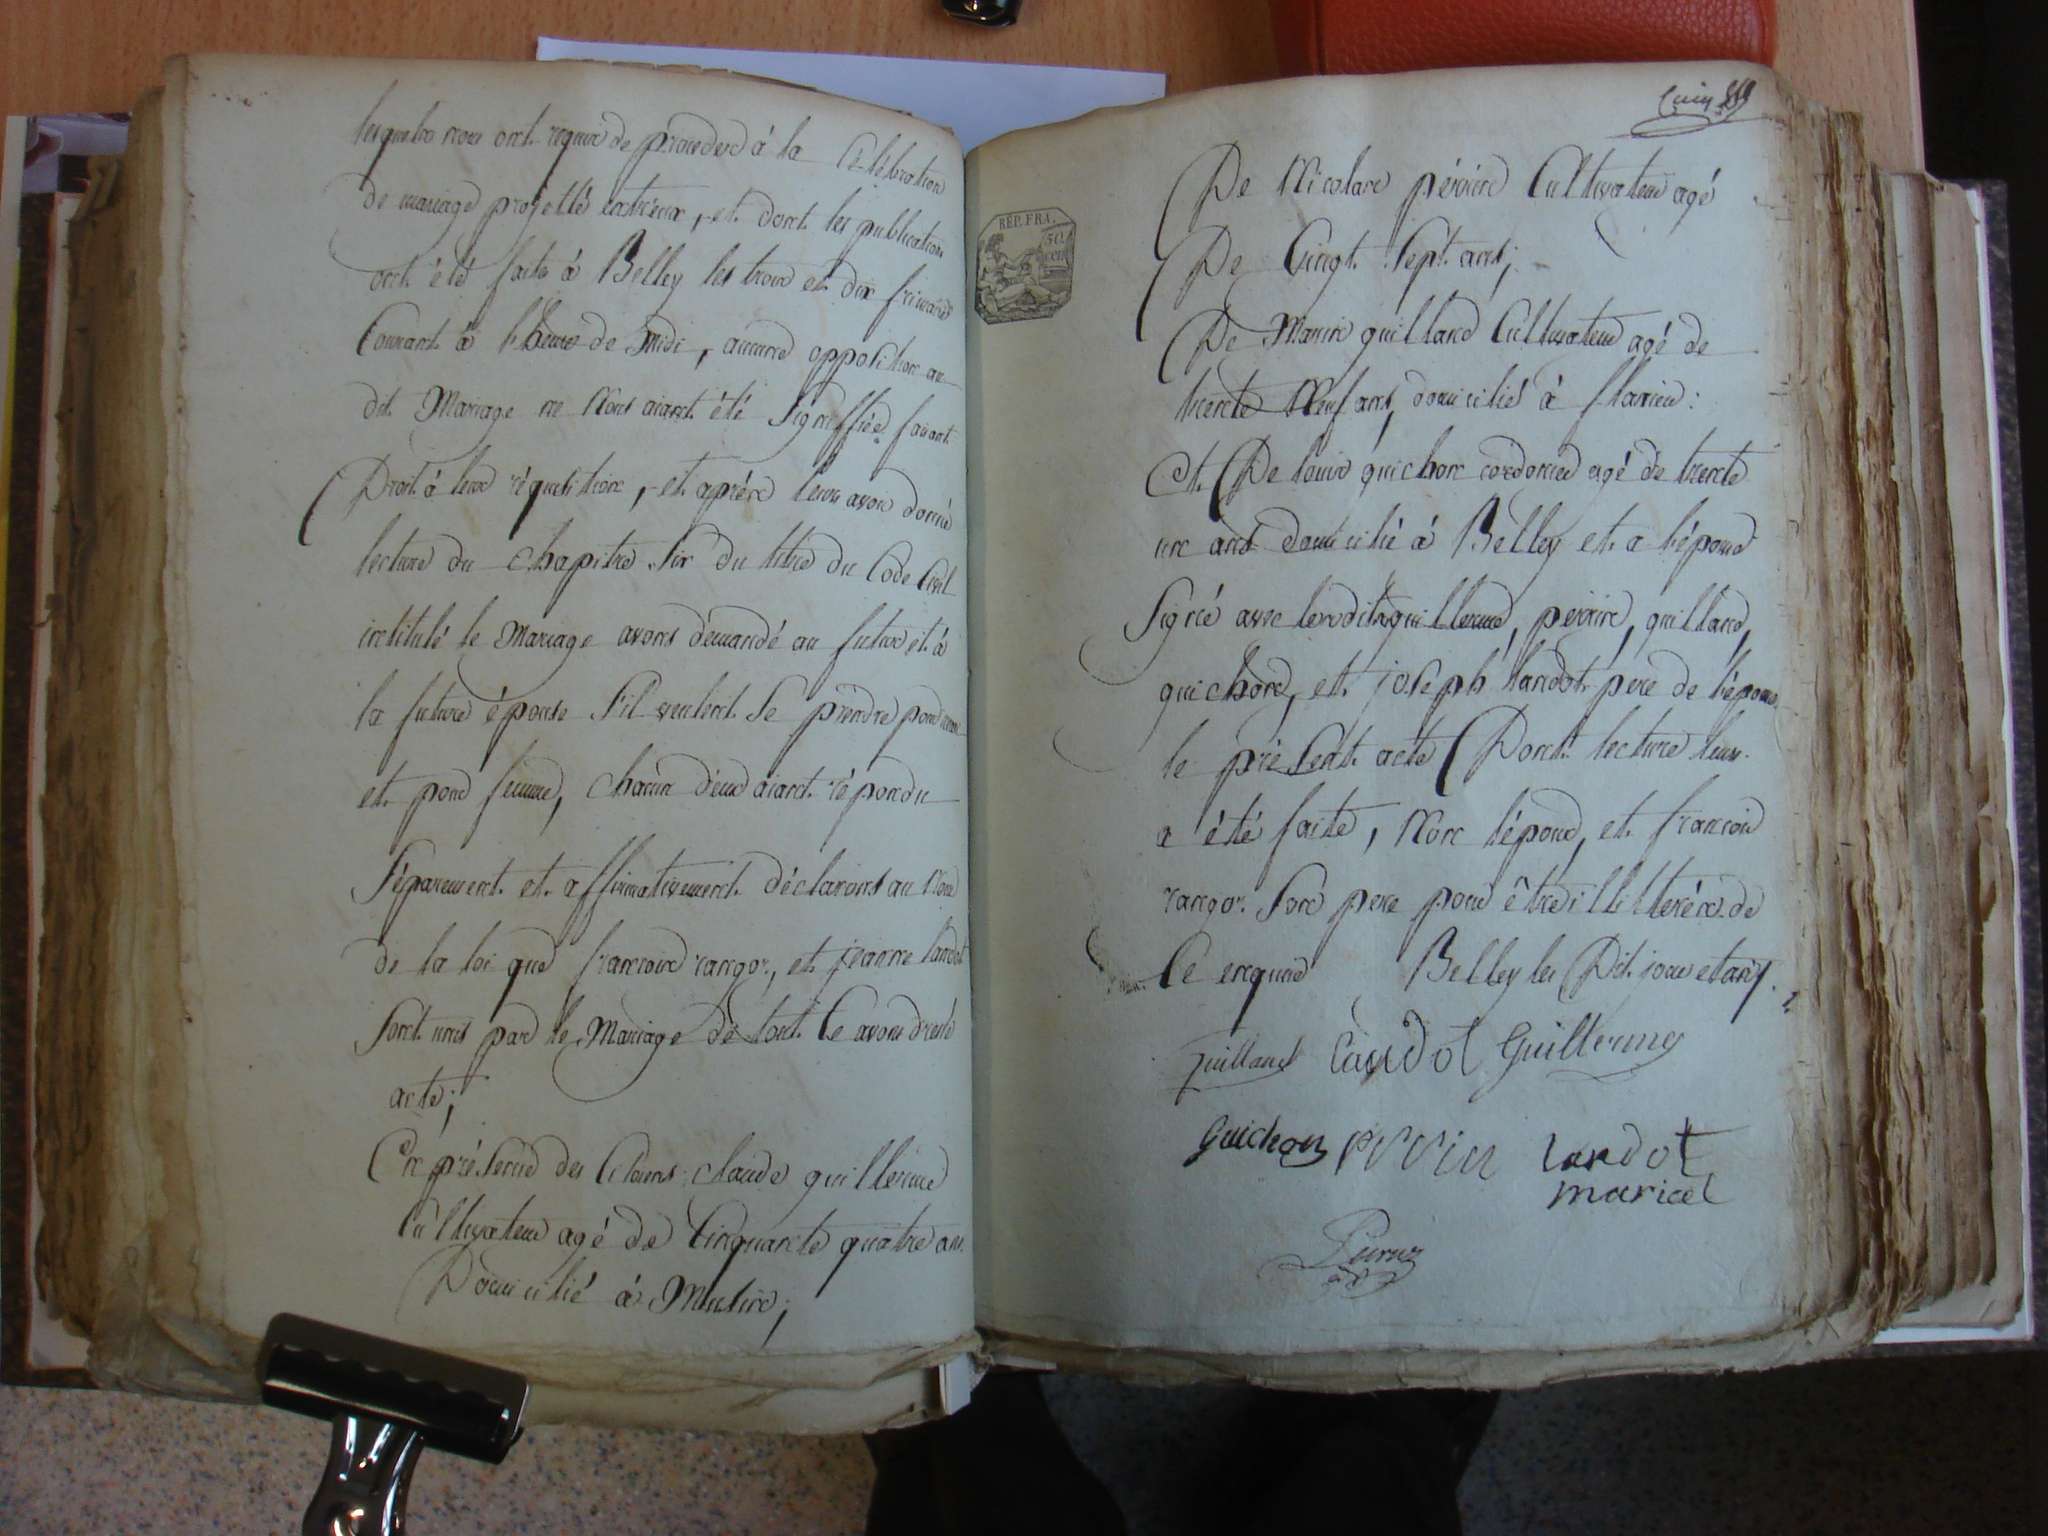 lesquels nous ont requis de proceder à la Célébration
de mariage projetté entreux, et dont les publications
ont été faites à Belley les trois et dix frimaire
Courant à l'heure de Midi, aucune opposition au
dit Mariage ne Nous aiant été Signiffiée faisant
Droit à leur réquisition, et après leur avoir donné
lecture du Chapitre Six du titre du Code Civil
intitulé le Mariage avons demandé au futur et à
la future épouse S'il veulent Se prendre pour mari
et pour femme, chacun d'eux aiant répondu
Séparement et affirmativement déclarons au Nom
de la loi que francois rangor, et jeanne landot
Sont unis par le Mariage de tout Ce avons dressé
acte;
En présence des Citoiens claude guillerme
Cultivateur agé de Cinquante quatre ans
Domicilié à
RÉP. FRA.
50
De Nicolas périer Cultivateur agé
De Vingt Sept ans;
De Marin guilland Cultivateur agé de
trente Neuf ans, domiciliés à flaxieu:
Et De louis guichon cordonier agé de trente
un ans domicilié à Belley et a l'épouse
Signé avec lesdits guillerme, perrin, guilland,
guichon, et joseph landot pere de l'épouse
le présent acte Dont lecture leur
a été faite, Non l'époux, et francois
rangor Son pere pour être illitterés de
Ce enquis Belley les Dit jour et an.
guilland Landot Guillerme
Guichon perrin landot